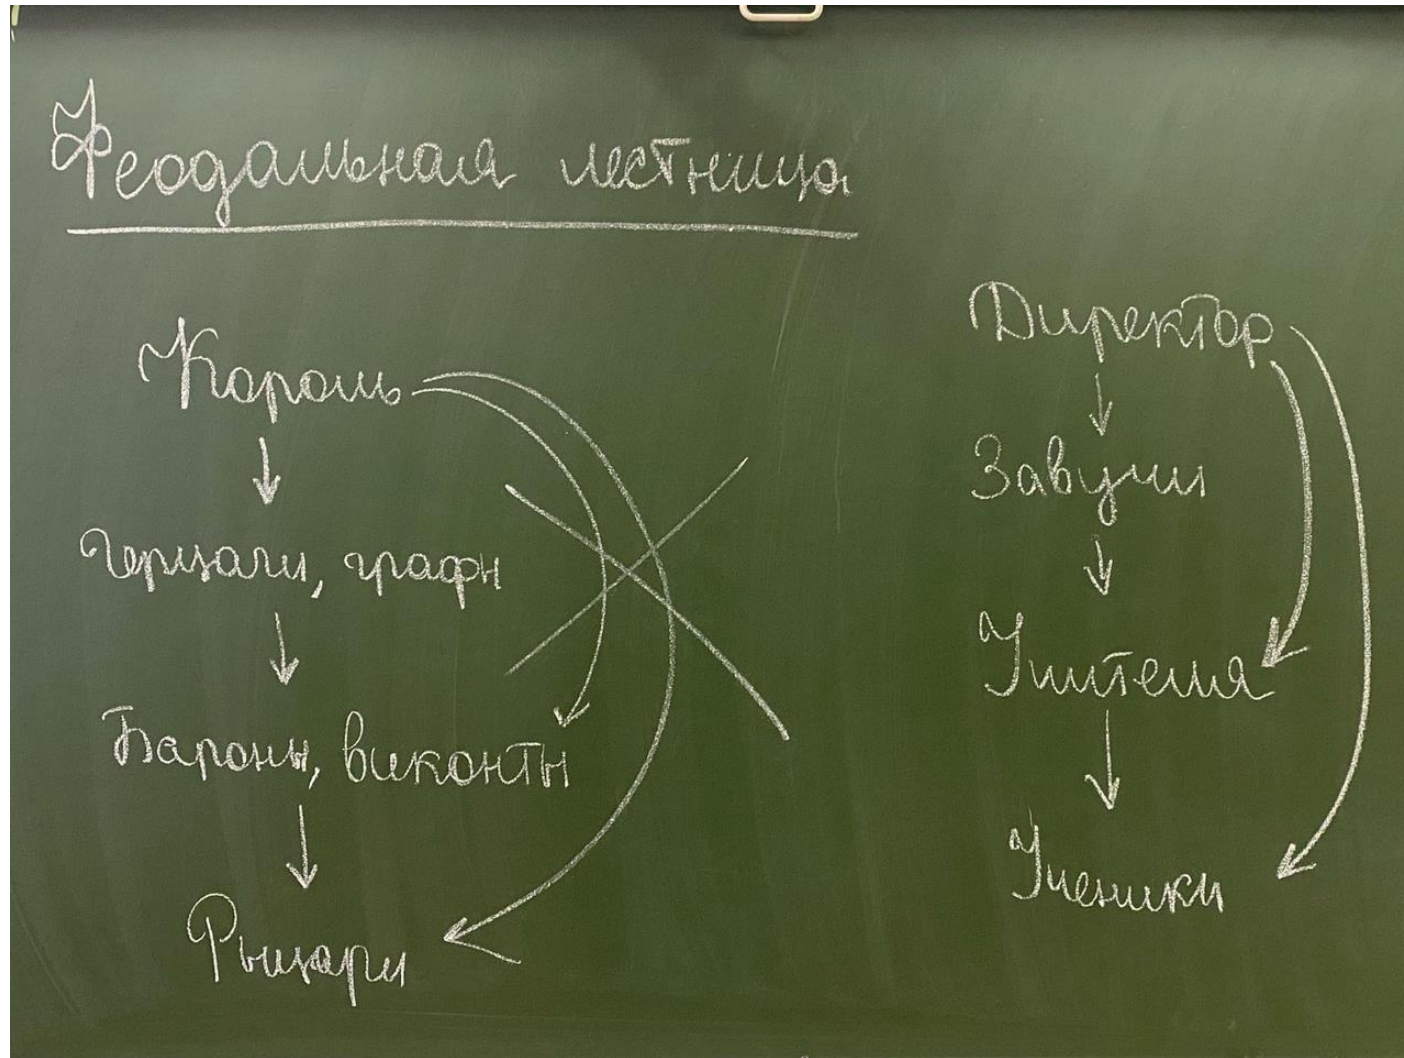 Феодальная лестница
Король
Герцоги, графы
Бароны, виконты
Рыцари
Директор
Завучи
Учителя
Ученики